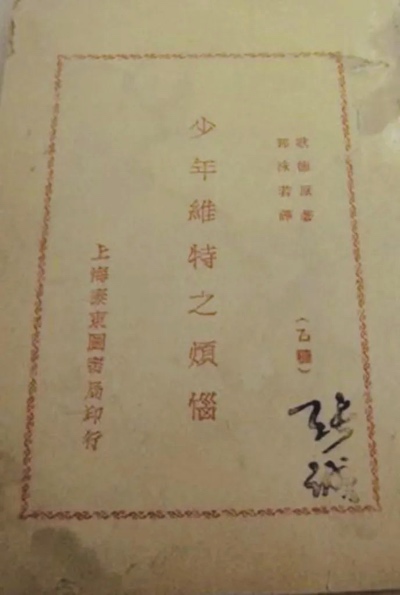 歌德原著
郭沫若譯
（乙種）
少年維特之煩惱
上海泰東圖書局印行